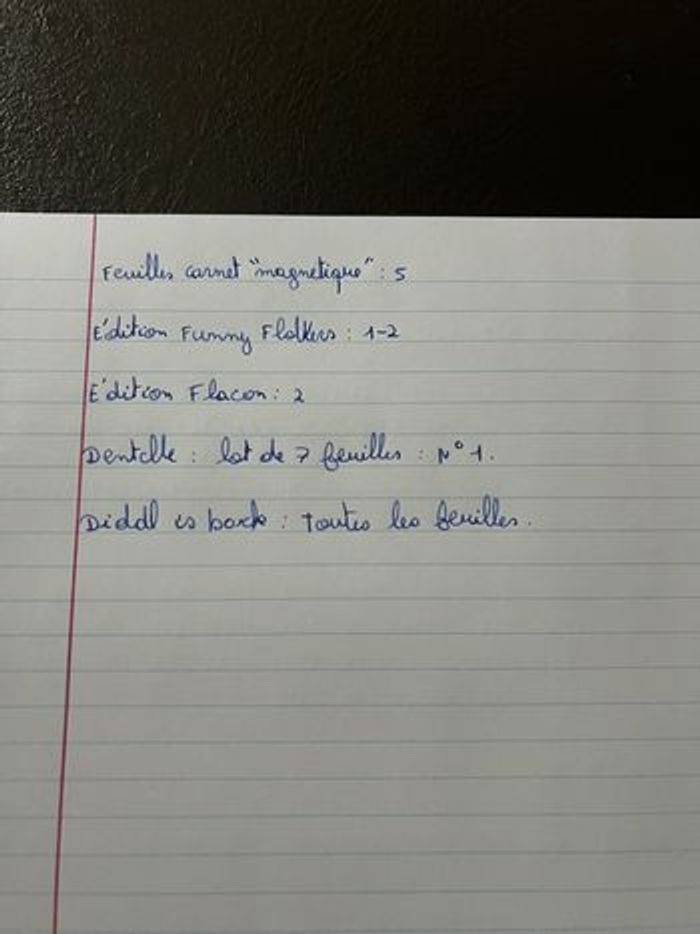 Feuilles carnet "magnetique" : 5
Edition Funny Flolkers : 1-2
Edition Flacon : 2
Dentelle : lot de 7 feuilles : N° 1.
Diddl is back : Toutes les feuilles.